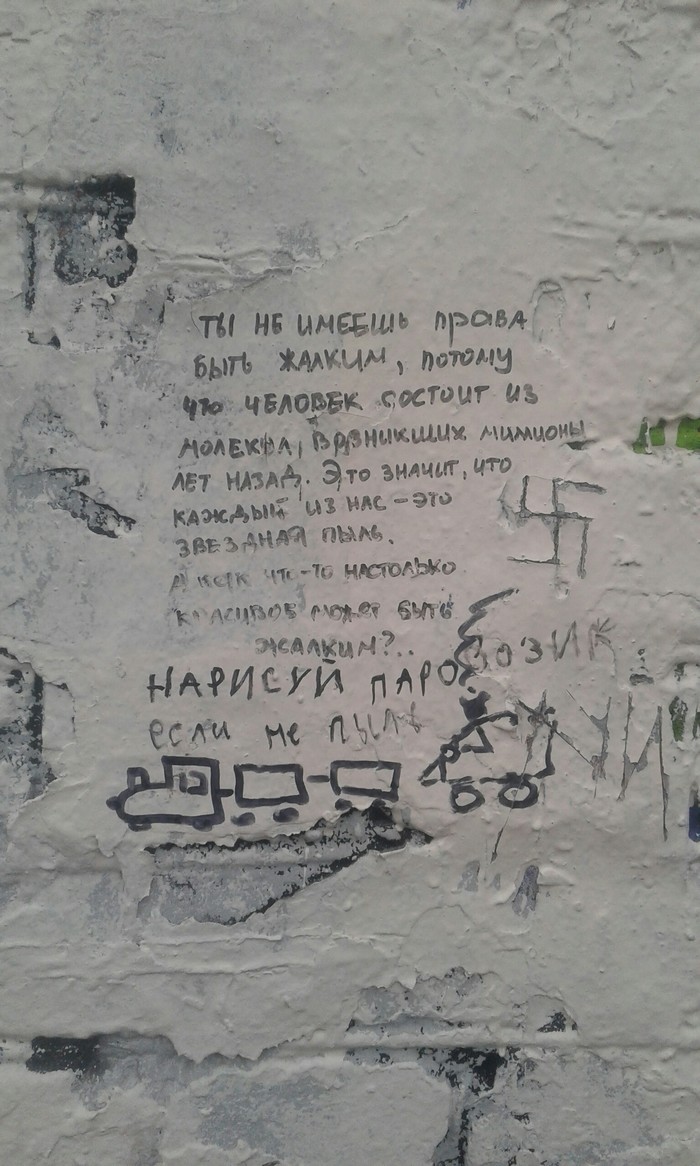 ТЫ НЕ ИМЕЕШЬ ПРАВА
БЫТЬ ЖАЛКИМ, ПОТОМУ
ЧТО ЧЕЛОВЕК СОСТОИТ ИЗ
МОЛЕКУЛ, ВОЗНИКШИХ МИЛЛИОНЫ
ЛЕТ НАЗАД. ЭТО ЗНАЧИТ, ЧТО
КАЖДЫЙ ИЗ НАС – ЭТО
ЗВЕЗДНАЯ ПЫЛЬ.
А КАК ЧТО-ТО НАСТОЛЬКО
КРАСИВОЕ МОЖЕТ БЫТЬ
ЖАЛКИМ?..
НАРИСУЙ ПАРОВОЗИК
если не ПЫЛЬ